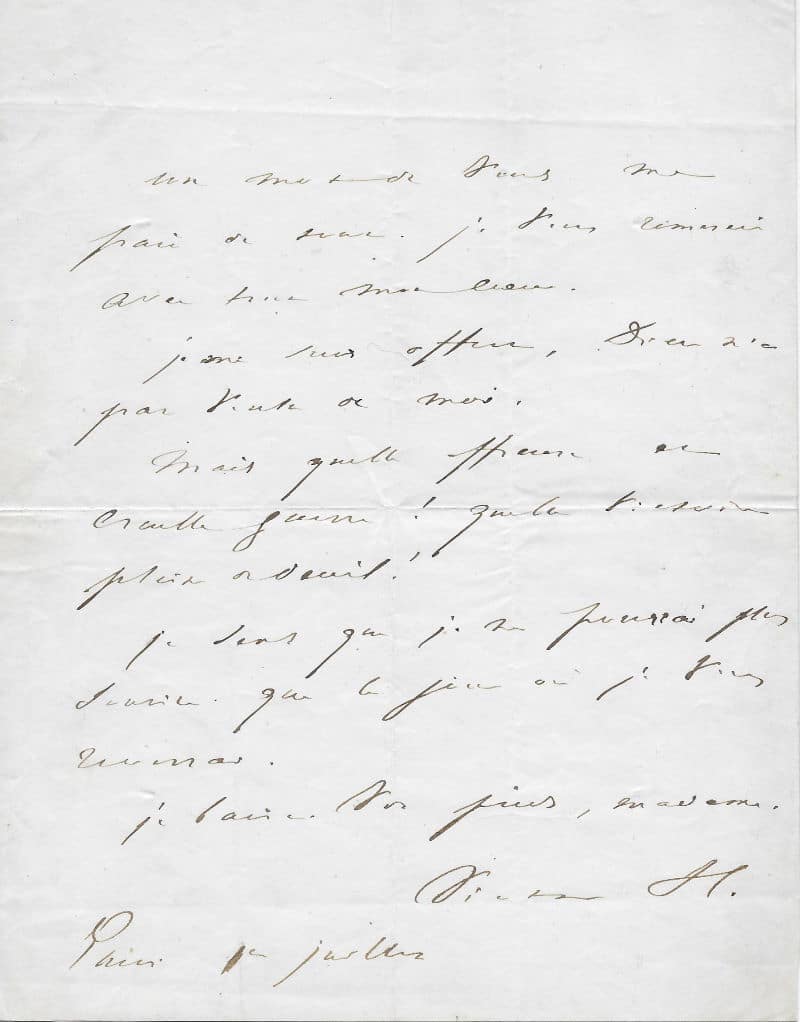 un mot de vous me
fait de bien. je vous remercie
avec tout mon cœur.
je me suis offert, Dieu n'a
pas voulu de moi.
Mais quelle affreuse et
cruelle guerre ! quelle victoire
pleine de deuil !
je sens que je ne pourrai plus
sourire que le jour où je vous
reverrai.
je baise vos pieds, madame.
Victor H.
Paris 1er juillet